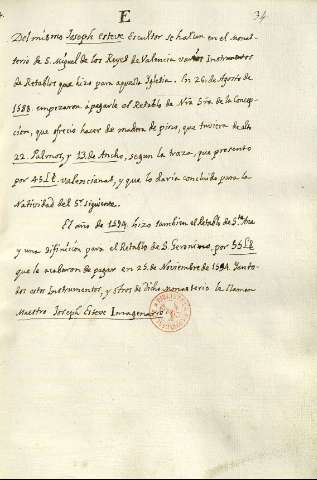 E
34
Del mismo Joseph Esteve Escultor se hallan en el Monas-
terio de S. Miguel de los Reyes de Valencia varios Instrumentos
de Retablos que hizo para aquella Iglesia. En 26. de Agosto de
1588. empezaron à pagarle el Retablo de Nra Sra de la Concep-
cion, que ofreciò hacer de madera de pino, que tuviera de alto
22. Palmos, y 12. de Ancho, segun la traza, que presentò
por 45 L.s valencianas, y que lo daria concluido para la
Natividad del Sr. siguiente.
El año de 1594. hizo tambien el Retablo de Sta Ana
y una difinicion para el Retablo de S. Geronimo, por 55 L.s
que le acabaron de pagar en 25. de Noviembre de 1594. En to-
dos estos Instrumentos, y otros de dicho Monasterio le llaman
Maestro Joseph Esteve Imaginario.